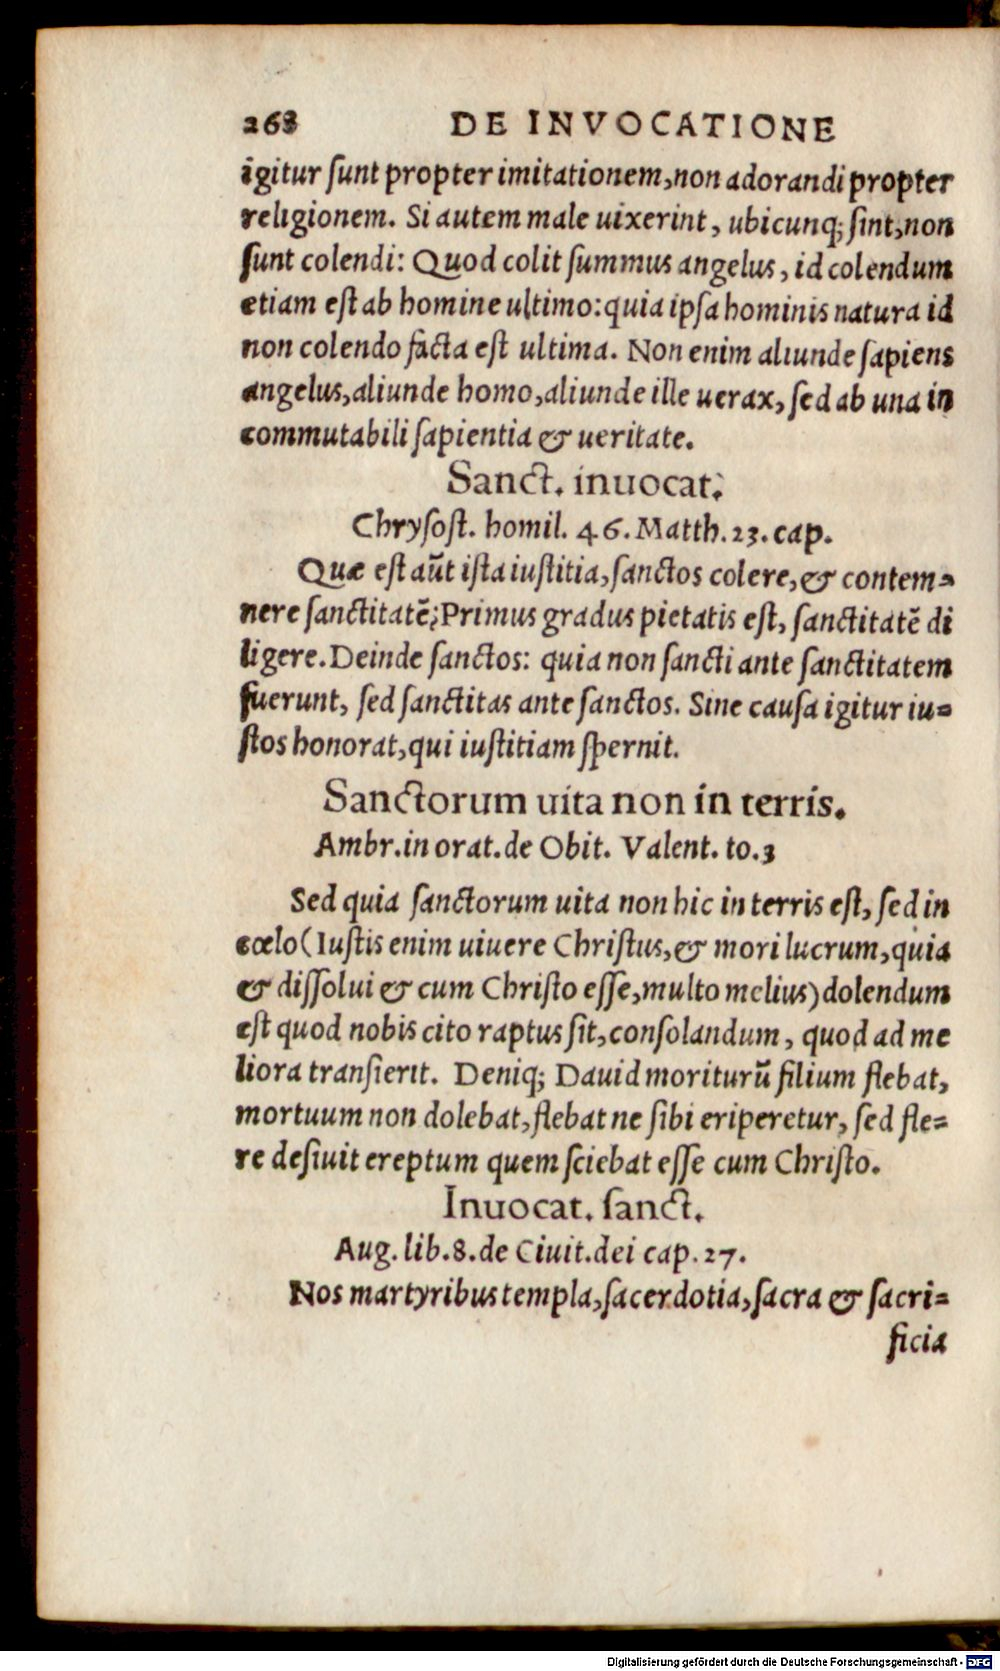 268 DE INVOCATIONE
igitur sunt propter imitationem, non adorandi propter
religionem. Si autem male uixerint, ubicunq; sint, non
sunt colendi: Quod colit summus angelus, id colendum
etiam est ab homine ultimo: quia ipsa hominis natura id
non colendo facta est ultima. Non enim aliunde sapiens
angelus, aliunde homo, aliunde ille uerax, sed ab una in
commutabili sapientia & ueritate.
Sanct. inuocat.
Chrysost. homil. 46. Matth. 23. cap.
Quæ est aūt ista iustitia, sanctos colere, & contem-
nere sanctitatē? Primus gradus pietatis est, sanctitatē di
ligere. Deinde sanctos: quia non sancti ante sanctitatem
fuerunt, sed sanctitas ante sanctos. Sine causa igitur iu-
stos honorat, qui iustitiam spernit.
Sanctorum uita non in terris.
Ambr. in orat. de Obit. Valent. to. 3
Sed quia sanctorum uita non hic in terris est, sed in
cœlo (Iustis enim uiuere Christus, & mori lucrum, quia
& dissolui & cum Christo esse, multo melius) dolendum
est quod nobis cito raptus sit, consolandum, quod ad me
liora transierit. Deniq; Dauid moriturū filium flebat,
mortuum non dolebat, flebat ne sibi eriperetur, sed fle-
re desiuit ereptum quem sciebat esse cum Christo.
Inuocat. sanct.
Aug. lib. 8. de Ciuit. dei cap. 27.
Nos martyribus templa, sacerdotia, sacra & sacri-
ficia
Digitalisierung gefördert durch die Deutsche Forschungsgemeinschaft - DFG